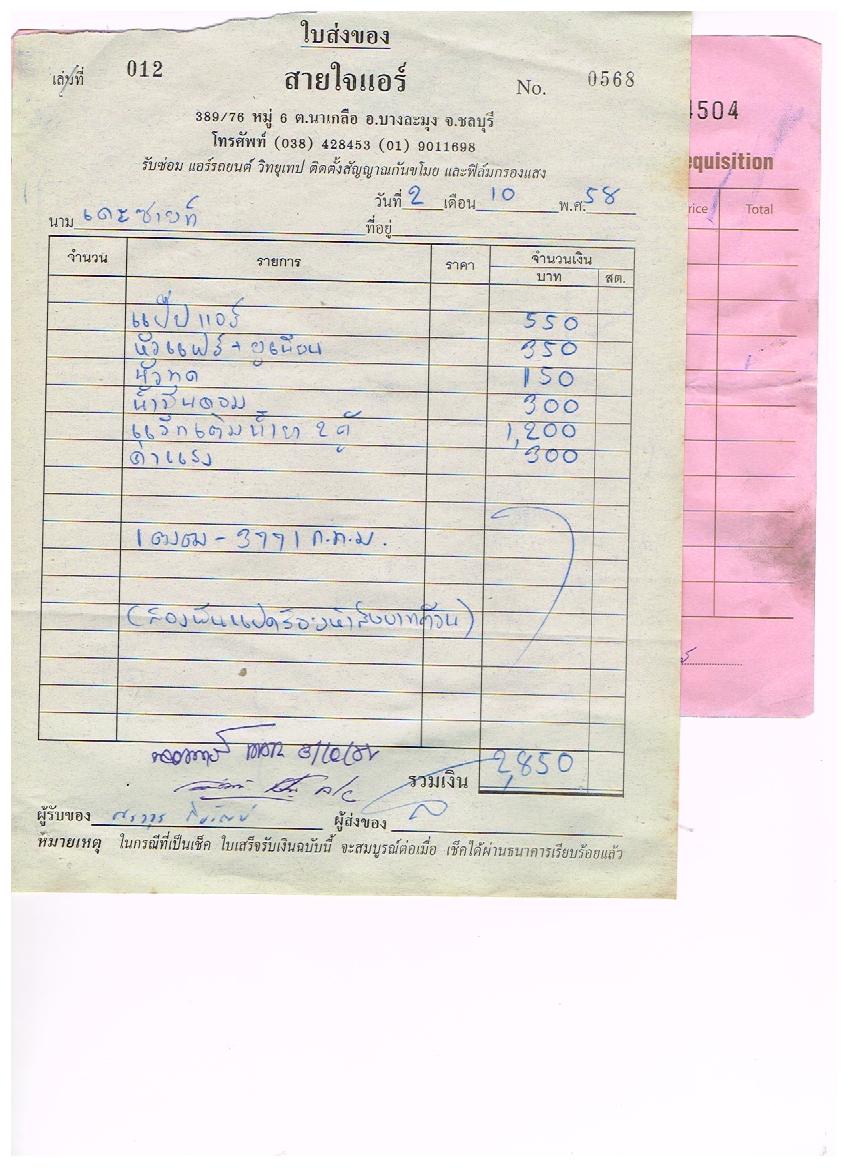 ใบส่งของ
เล่มที่ 012
สายใจแอร์
No. 0568
389/76 หมู่ 6 ต.นาเกลือ อ.บางละมุง จ.ชลบุรี
โทรศัพท์ (038) 428453 (01) 9011698
รับซ่อม แอร์รถยนต์ วิทยุเทป ติดตั้งสัญญาณกันขโมย และฟิล์มกรองแสง
วันที่ 2 เดือน 10 พ.ศ. 58
นาม เดอะซายท์ ที่อยู่
จำนวน รายการ ราคา จำนวนเงิน
บาท สต.
แป๊ปแอร์ 550
หัวแฟร์ + ยูเนียน 350
หัวทด 150
น้ำมันคอม 300
แวักเติมน้ำยา 2 ตู้ 1,200
ค่าแรง 300
3771 ก.ค.ม.
(สองพันแปดร้อยห้าสิบบาทถ้วน)
รวมเงิน 2,850
ผู้รับของ
ผู้ส่งของ
หมายเหตุ ในกรณีที่เป็นเช็ค ใบเสร็จรับเงินฉบับนี้ จะสมบูรณ์ต่อเมื่อ เช็คได้ผ่านธนาคารเรียบร้อยแล้ว
4504
equisition
rice Total